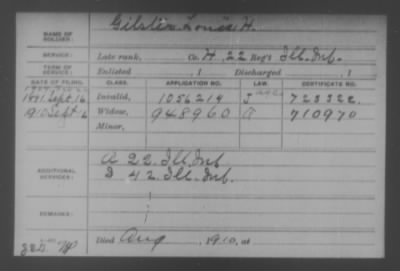 NAME OF SOLDIER: Gilster Louis H.
SERVICE: Late rank, Co. H, 22 Reg't Ill. Inf.
TERM OF SERVICE: Enlisted , 1 Discharged , 1
DATE OF FILING. CLASS. APPLICATION NO. LAW. CERTIFICATE NO.
1891, Sept. 16 Invalid, 1056214 J 725522
1910 Sept Widow, 948960 a 710970
Minor,
ADDITIONAL SERVICES: A 22. Ill. Inf.
D 42. Ill. Inf.
REMARKS:
Died Aug , 1910, at